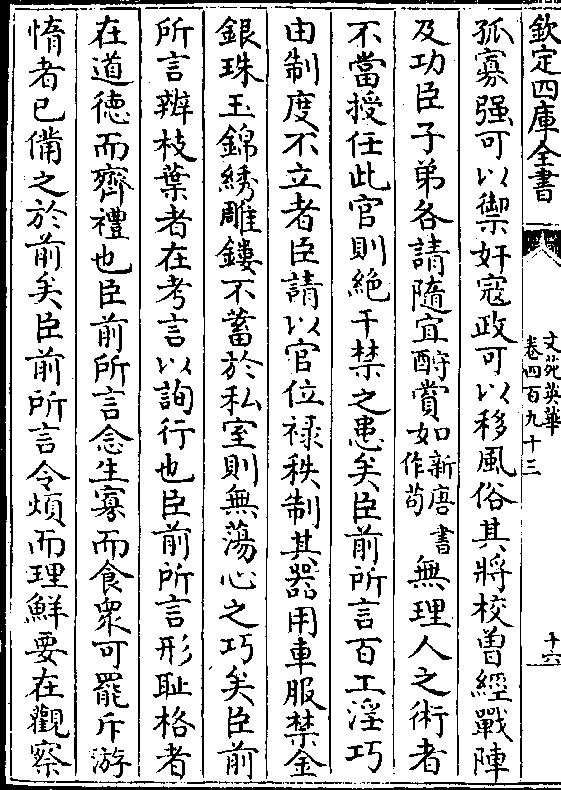 欽定四庫全書
文苑英華
卷四百九十三
十六
孤寡强可以禦奸寇政可以移風俗其將校曽經戰陣
及功臣子弟各請隨宜酧賞如新唐書作茍無理人之術者
不當授任此官則絶干禁之患矣臣前所言百工淫巧
由制度不立者臣請以官位禄秩制其器用車服禁金
銀珠玉錦綉雕鏤不蓄於私室則無蕩心之巧矣臣前
所言辨枝葉者在考言以詢行也臣前所言形耻格者
在道徳而齊禮也臣前所言念生寡而食衆可罷斥游
惰者已備之於前矣臣前所言令煩而理鮮要在觀察